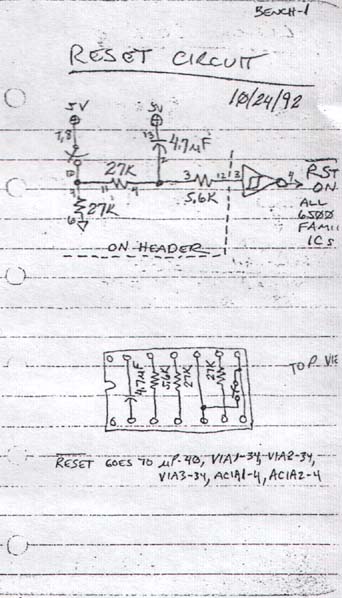 BENCH-1
RESET CIRCUIT
10/24/92
5V 5V
7,8 13 4.7µF
27K
1 11 4 2 3 12 13 4 RST
27K 5.6K ON
6 ALL
6500
FAMI
ICs
ON HEADER
TOP VIE
4.7µF 5.6K 27K 27K
RESET GOES TO µP-40, VIA1-34, VIA2-34,
VIA3-34, ACIA1-4, ACIA2-4